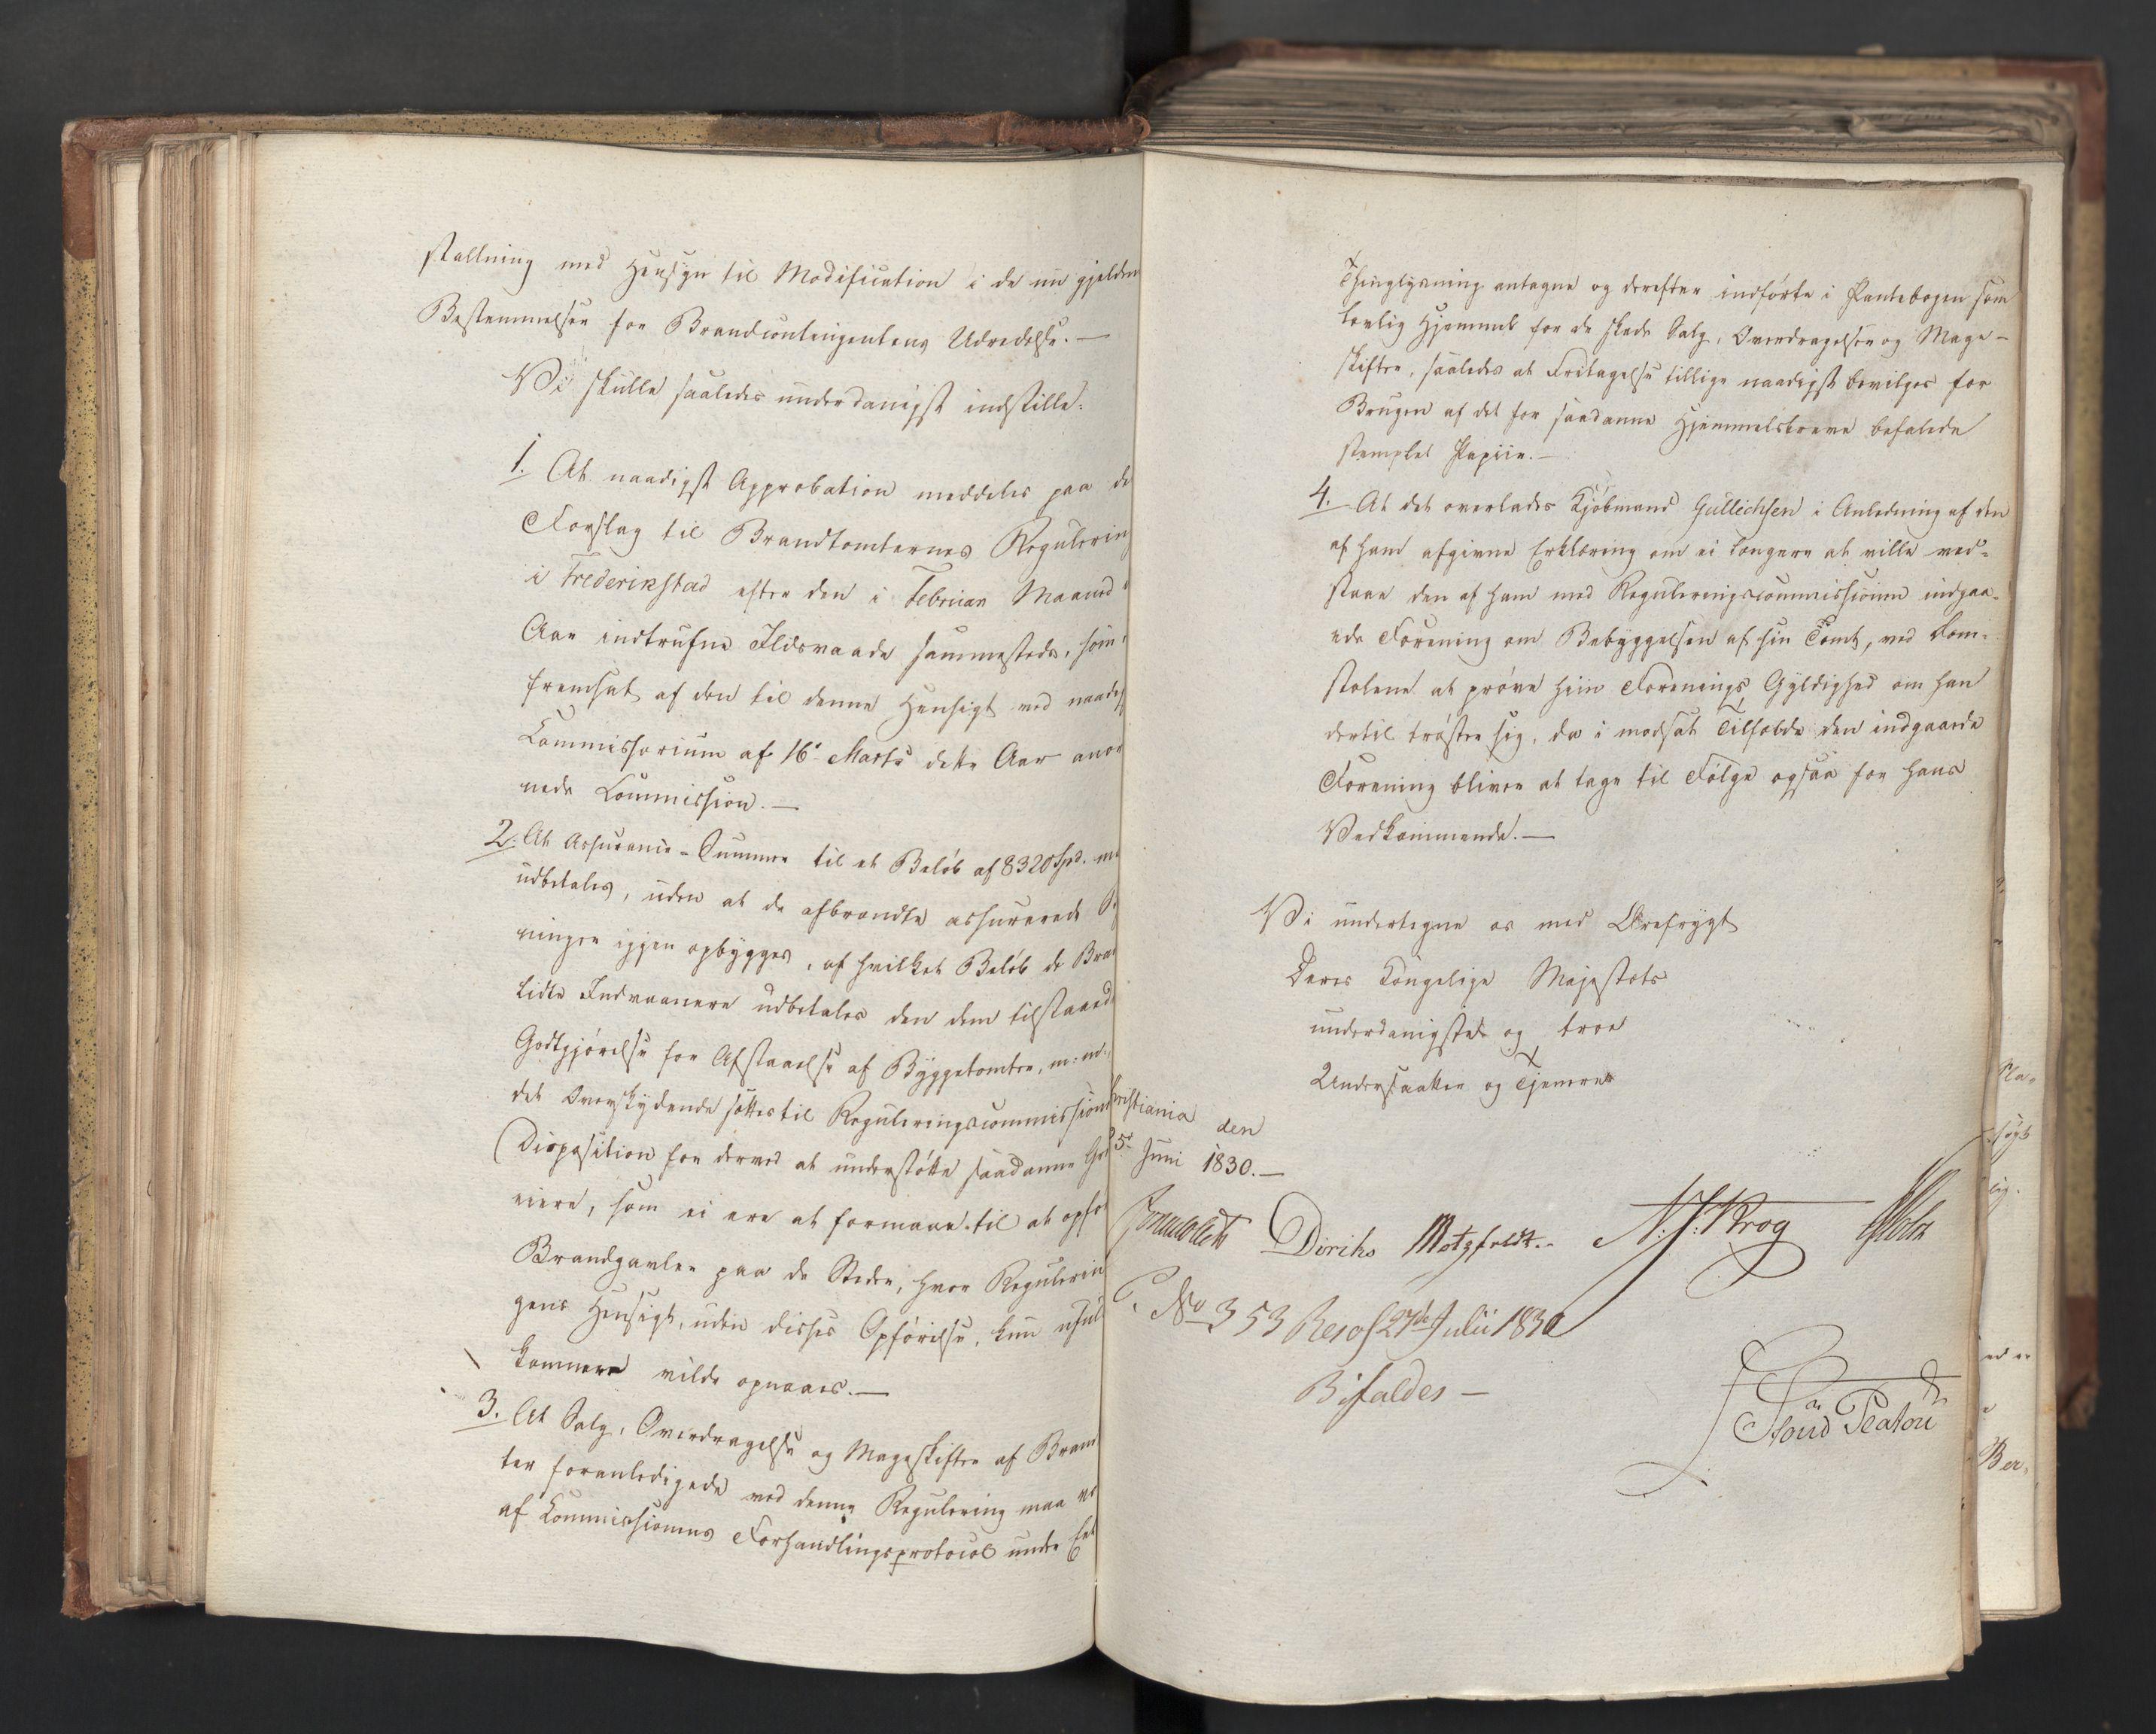 stallning med Hensyn til Modification i de nu gjelden
Bestemmelser for Brandcontingentens Udredelse. —
Vi skulle saaledes underdanigst indstille:
1. At naadigst Approbation meddeles paa de
Forslag til Brandtomternes Regulering
i Frederikstad efter den i Februar Maaned
Aar indtrufne Ildsvaade sammesteds, som
fremsat af den til denne Hensigt ved naadigst
Commissorium af 16de Marts dette Aar anord
nede Commission. —
2. At Assurance-Summer til et Beløb af 8320 Spd. maa
udbetales, uden at de afbrændte assurerede
ninger igjen opbygges, af hvilket Beløb de Brand
lidte Indvaanere udbetales den dem tilstaaede
Godtgjørelse for Afstaaelse af Byggetomter, m: m.,
det Overskydende sættes til Reguleringscommissionens
Disposition for derved at understøtte saadanne Gaard
eiere, som ei ere at formaae til at opføre
Brandgavler paa de Steder, hvor Regulerin
gens Hensigt, uden disses Opførelse, kun ufuld
kommen vilde opnaaes. —
3. At Salg, Overdragelse og Mageskifter af Brandtom
ter foranledigede ved denne Regulering maa ved
af Commissionens Forhandlingsprotocol under
Thinglysning antagne og derefter indførte i Pantebogen som
lovlig Hjemmel for de skede Salg, Overdragelser og Mage-
skifter, saaledes at Fritagelse tillige naadigst bevilges for
Brugen af det for saadanne Hjemmelsbreve befalede
stemplet Papiir. —
4. At det overlades Kjøbmand Gullichsen i Anledning af den
af ham afgivne Erklæring om ei længere at ville ved-
staae den af ham med Reguleringscommissionen indgaa-
ede Forening om Bebyggelsen af sin Tomt, ved Dom-
stolene at prøve hiin Forenings Gyldighed om han
dertil trøster sig, da i modsat Tilfælde den indgaaede
Forening bliver at tage til Følge ogsaa for hans
Vedkommende. —
Vi undertegne os med Ærefrygt
Deres Kongelige Majestæts
underdanigste og troe
Undersaatter og Tjenere
Christiania den
5te Juni 1830. —
Diriks Motzfeldt. N. J. Krog Holst
No 353 Resol 27de Julii 1830
Bifaldes —